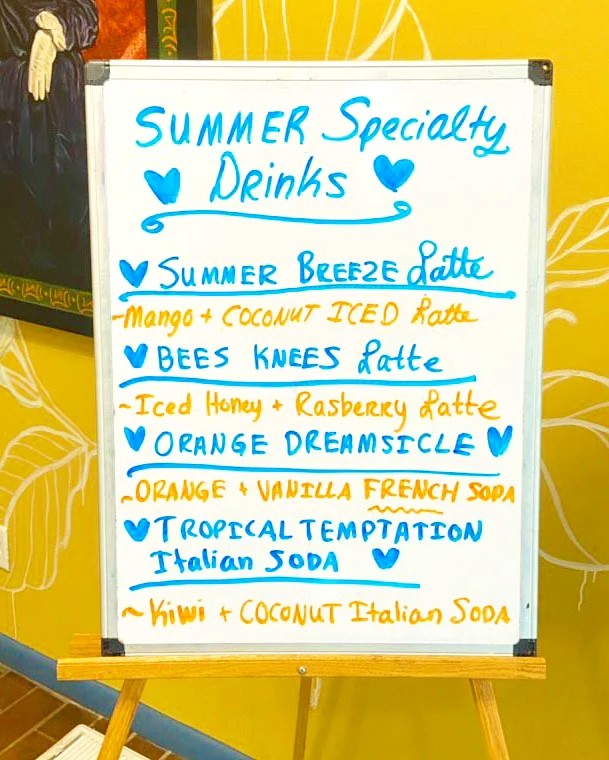 SUMMER Specialty
Drinks
SUMMER BREEZE Latte
~Mango + COCONUT ICED Latte
BEES KNEES Latte
~Iced Honey + Rasberry Latte
ORANGE DREAMSICLE
~ORANGE + VANILLA FRENCH SODA
TROPICAL TEMPTATION
Italian SODA
~Kiwi + COCONUT Italian SODA